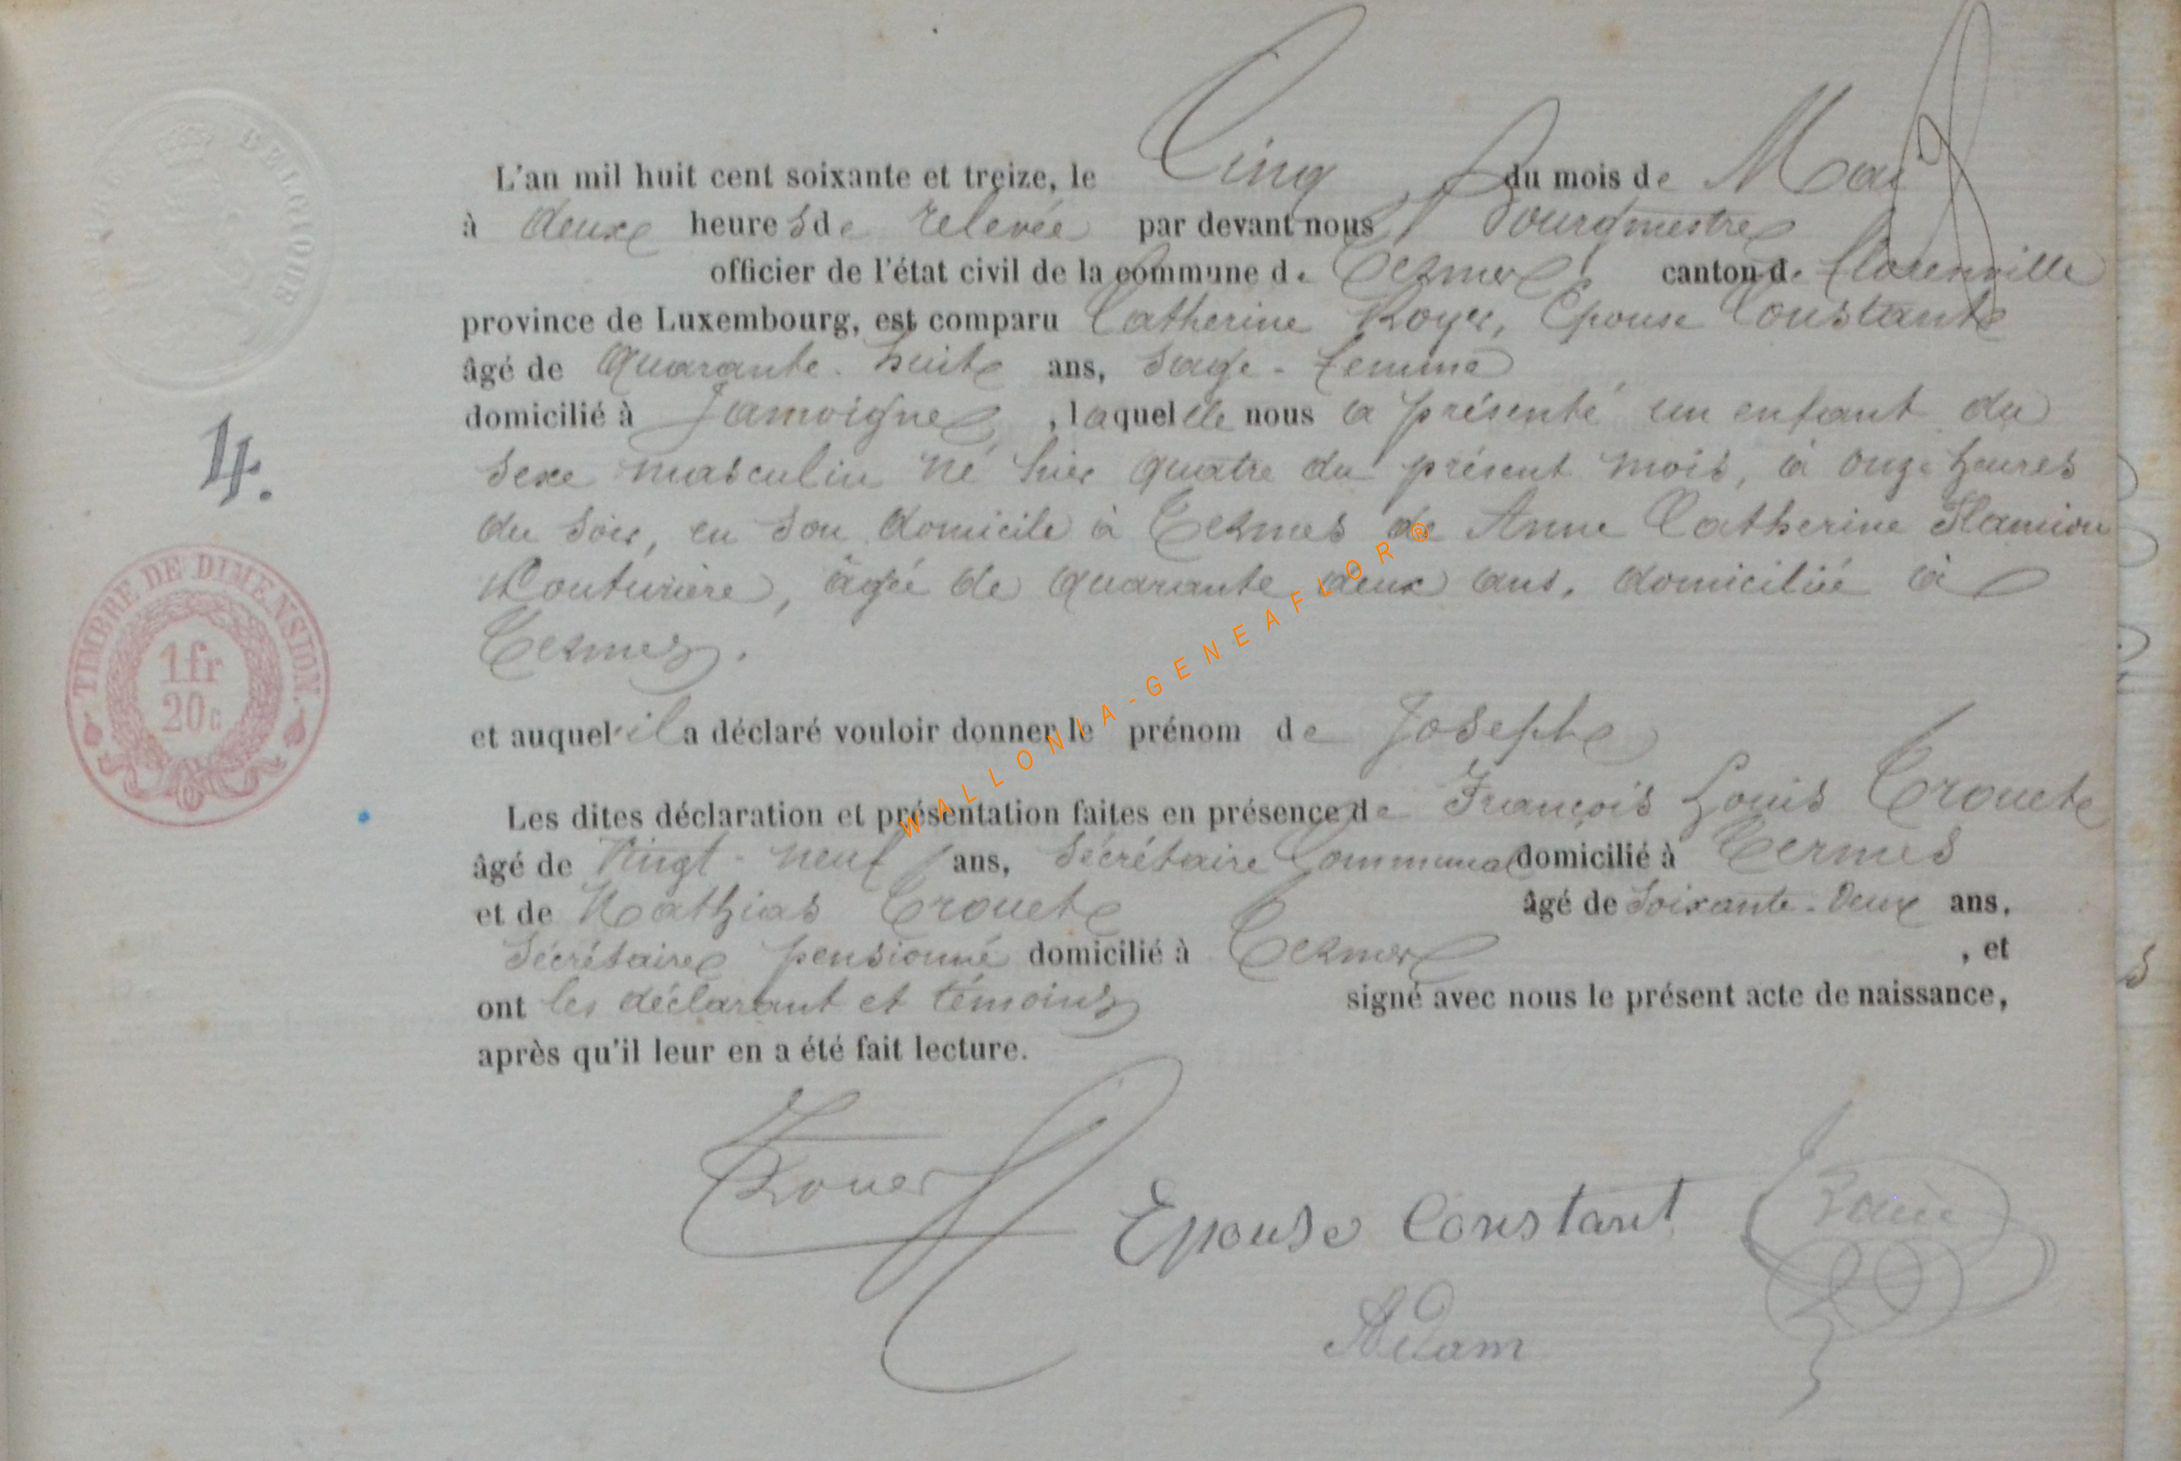 BELGIQUE
L'an mil huit cent soixante et treize, le Cinq du mois de Mai
à deux heures de relevée par devant nous Bourgmestre
officier de l'état civil de la commune de Termes canton de Florenville
province de Luxembourg, est comparu Catherine Royer, Epouse Constant
âgé de Quarante-huit ans, sage-femme
domicilié à Jamoigne, laquelle nous a présenté un enfant du
sexe masculin né hier quatre du présent mois, à onze heures
du soir, en son domicile à Termes de Anne Catherine Hamion
Couturière, âgée de quarante deux ans, domiciliée à
Termes.
4.
TIMBRE DE DIMENSION.
1 fr
20 c
et auquel il a déclaré vouloir donner le prénom de Joseph
Les dites déclaration et présentation faites en présence de François Louis Trouet
âgé de Vingt-neuf ans, Secrétaire Communal domicilié à Termes
et de Mathias Trouet âgé de Soixante-Deux ans,
Secrétaire pensionné domicilié à Termes, et
ont les déclarant et témoins signé avec nous le présent acte de naissance,
après qu'il leur en a été fait lecture.
Epouse Constant
Adam
WALLONIA-GENEAFLOR®